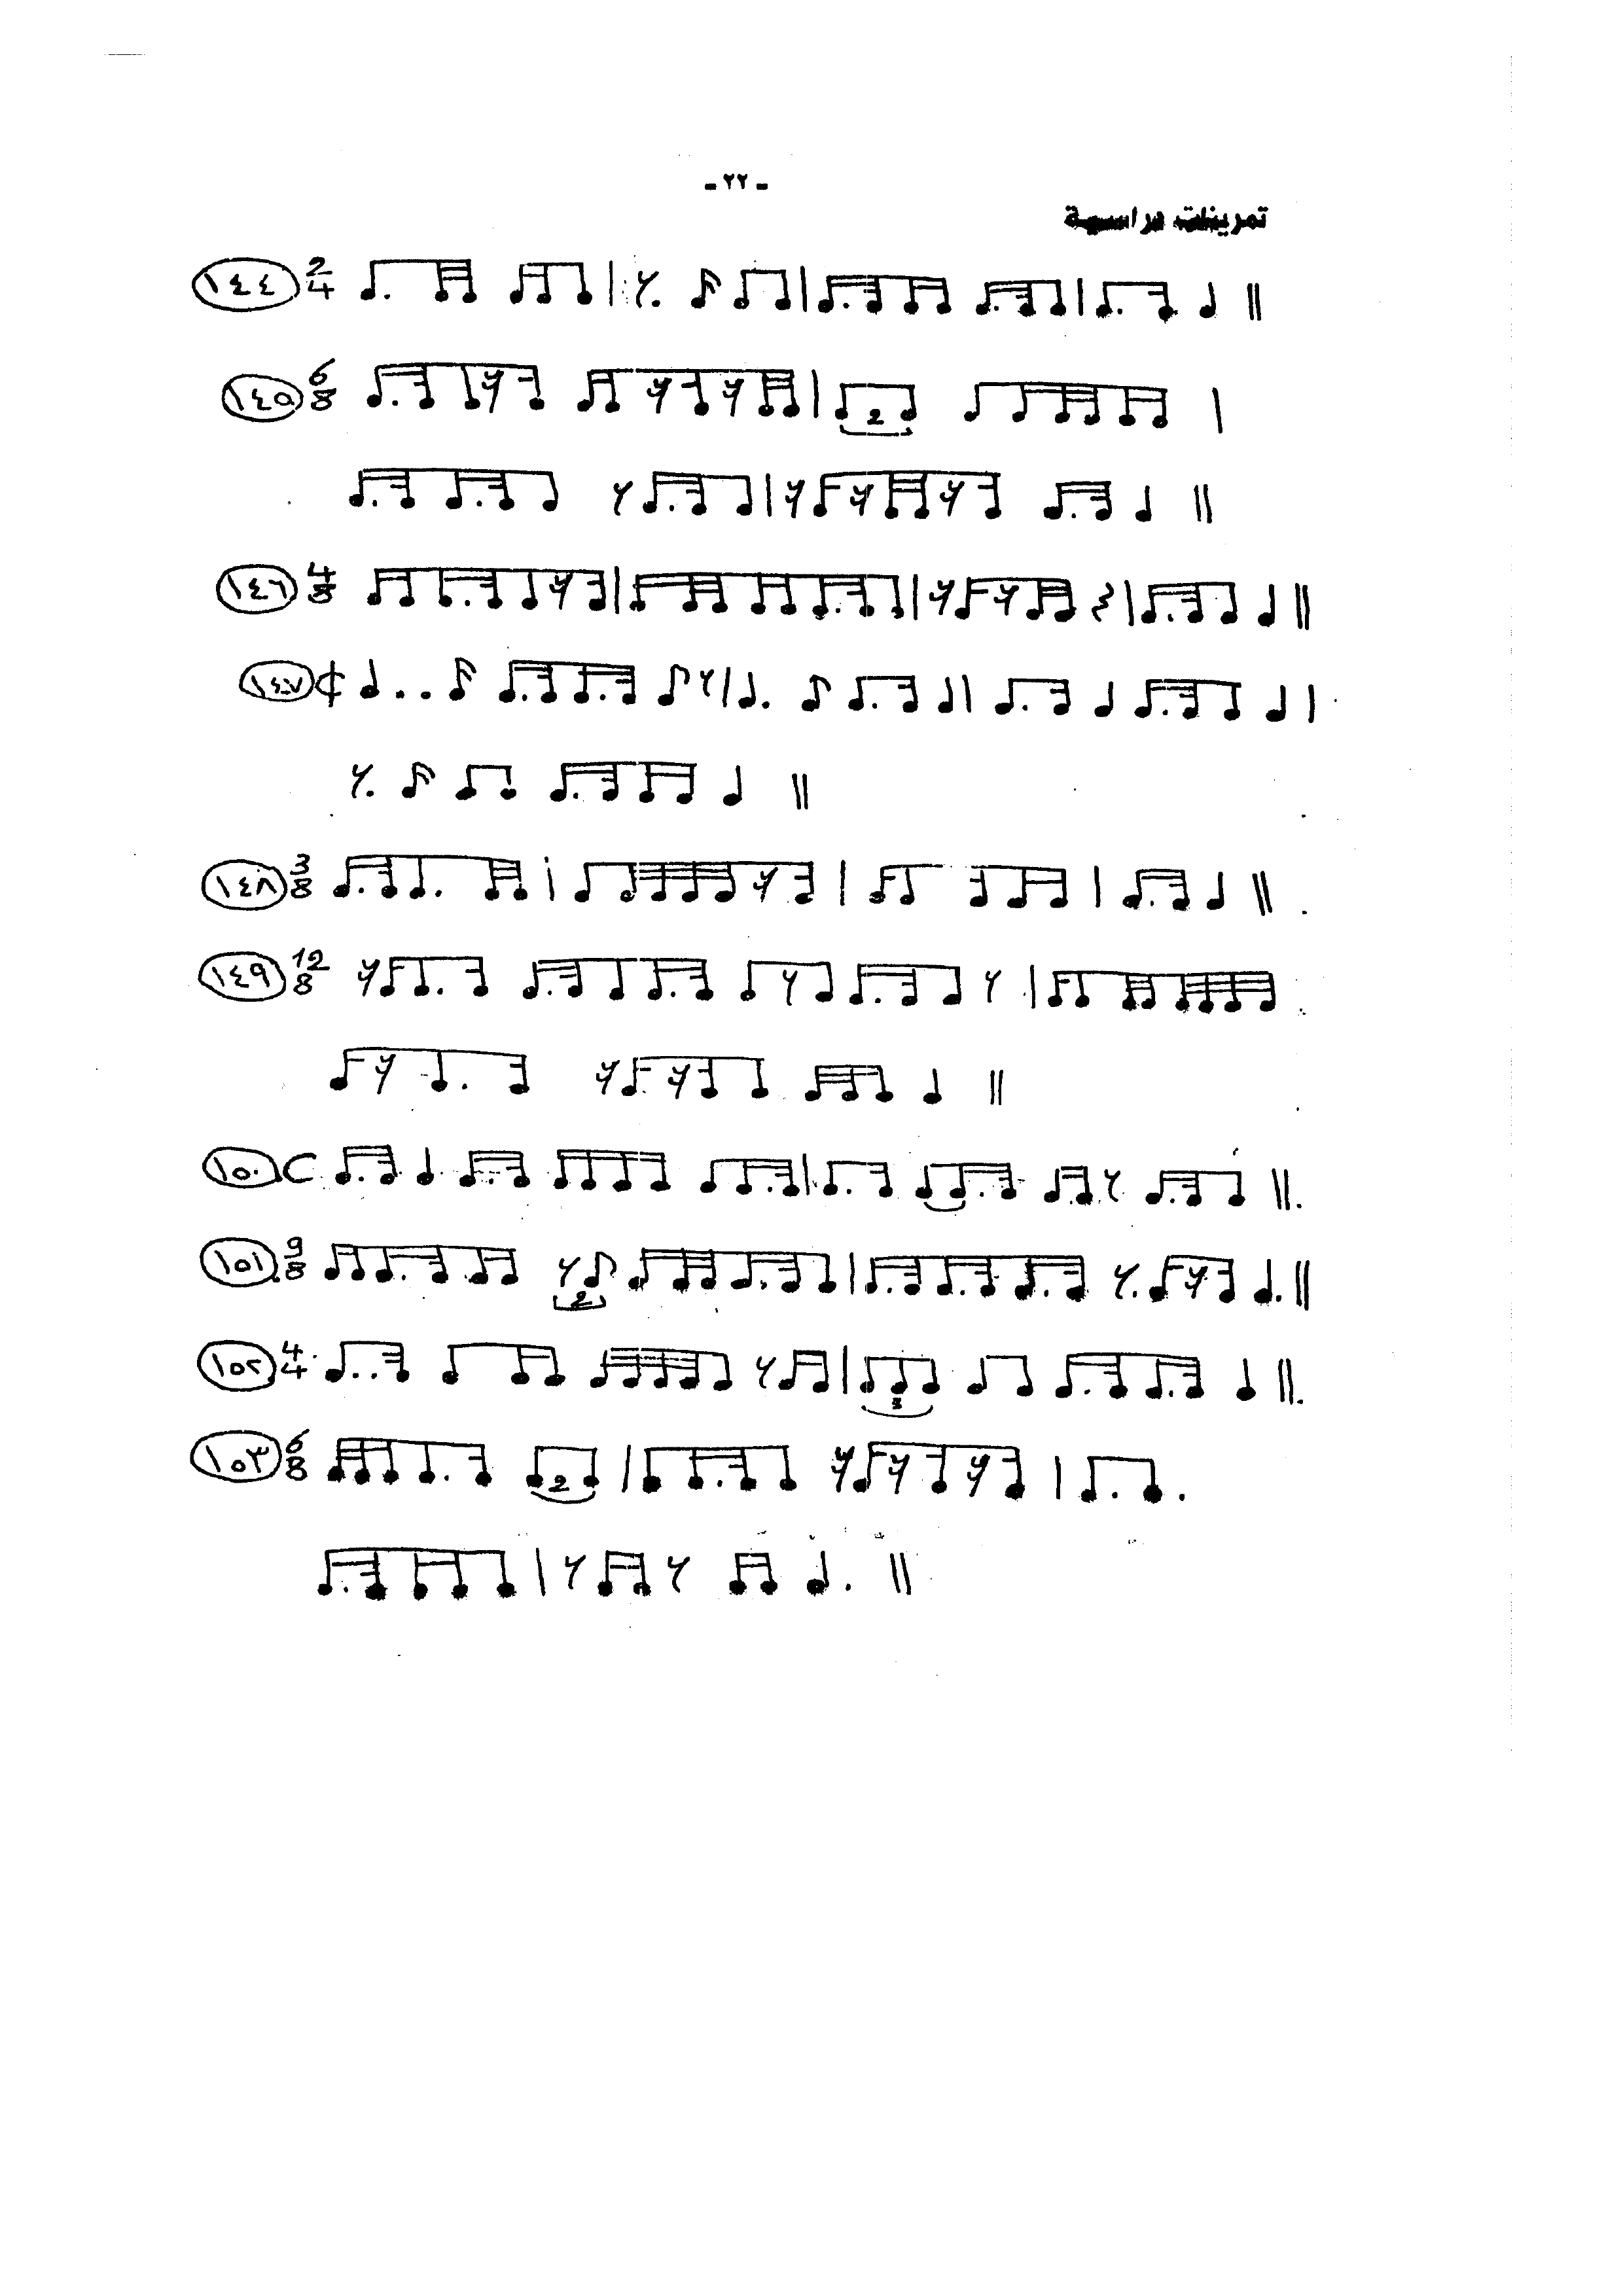 - ٢٢ -
تمرينات دراسية
١٤٤ 2/4
١٤٥ 6/8
2
١٤٦ 4/8
١٤٧
١٤٨ 3/8
١٤٩ 12/8
١٥٠ C
١٥١ 9/8
2
١٥٢ 4/4
3
١٥٣ 6/8
2